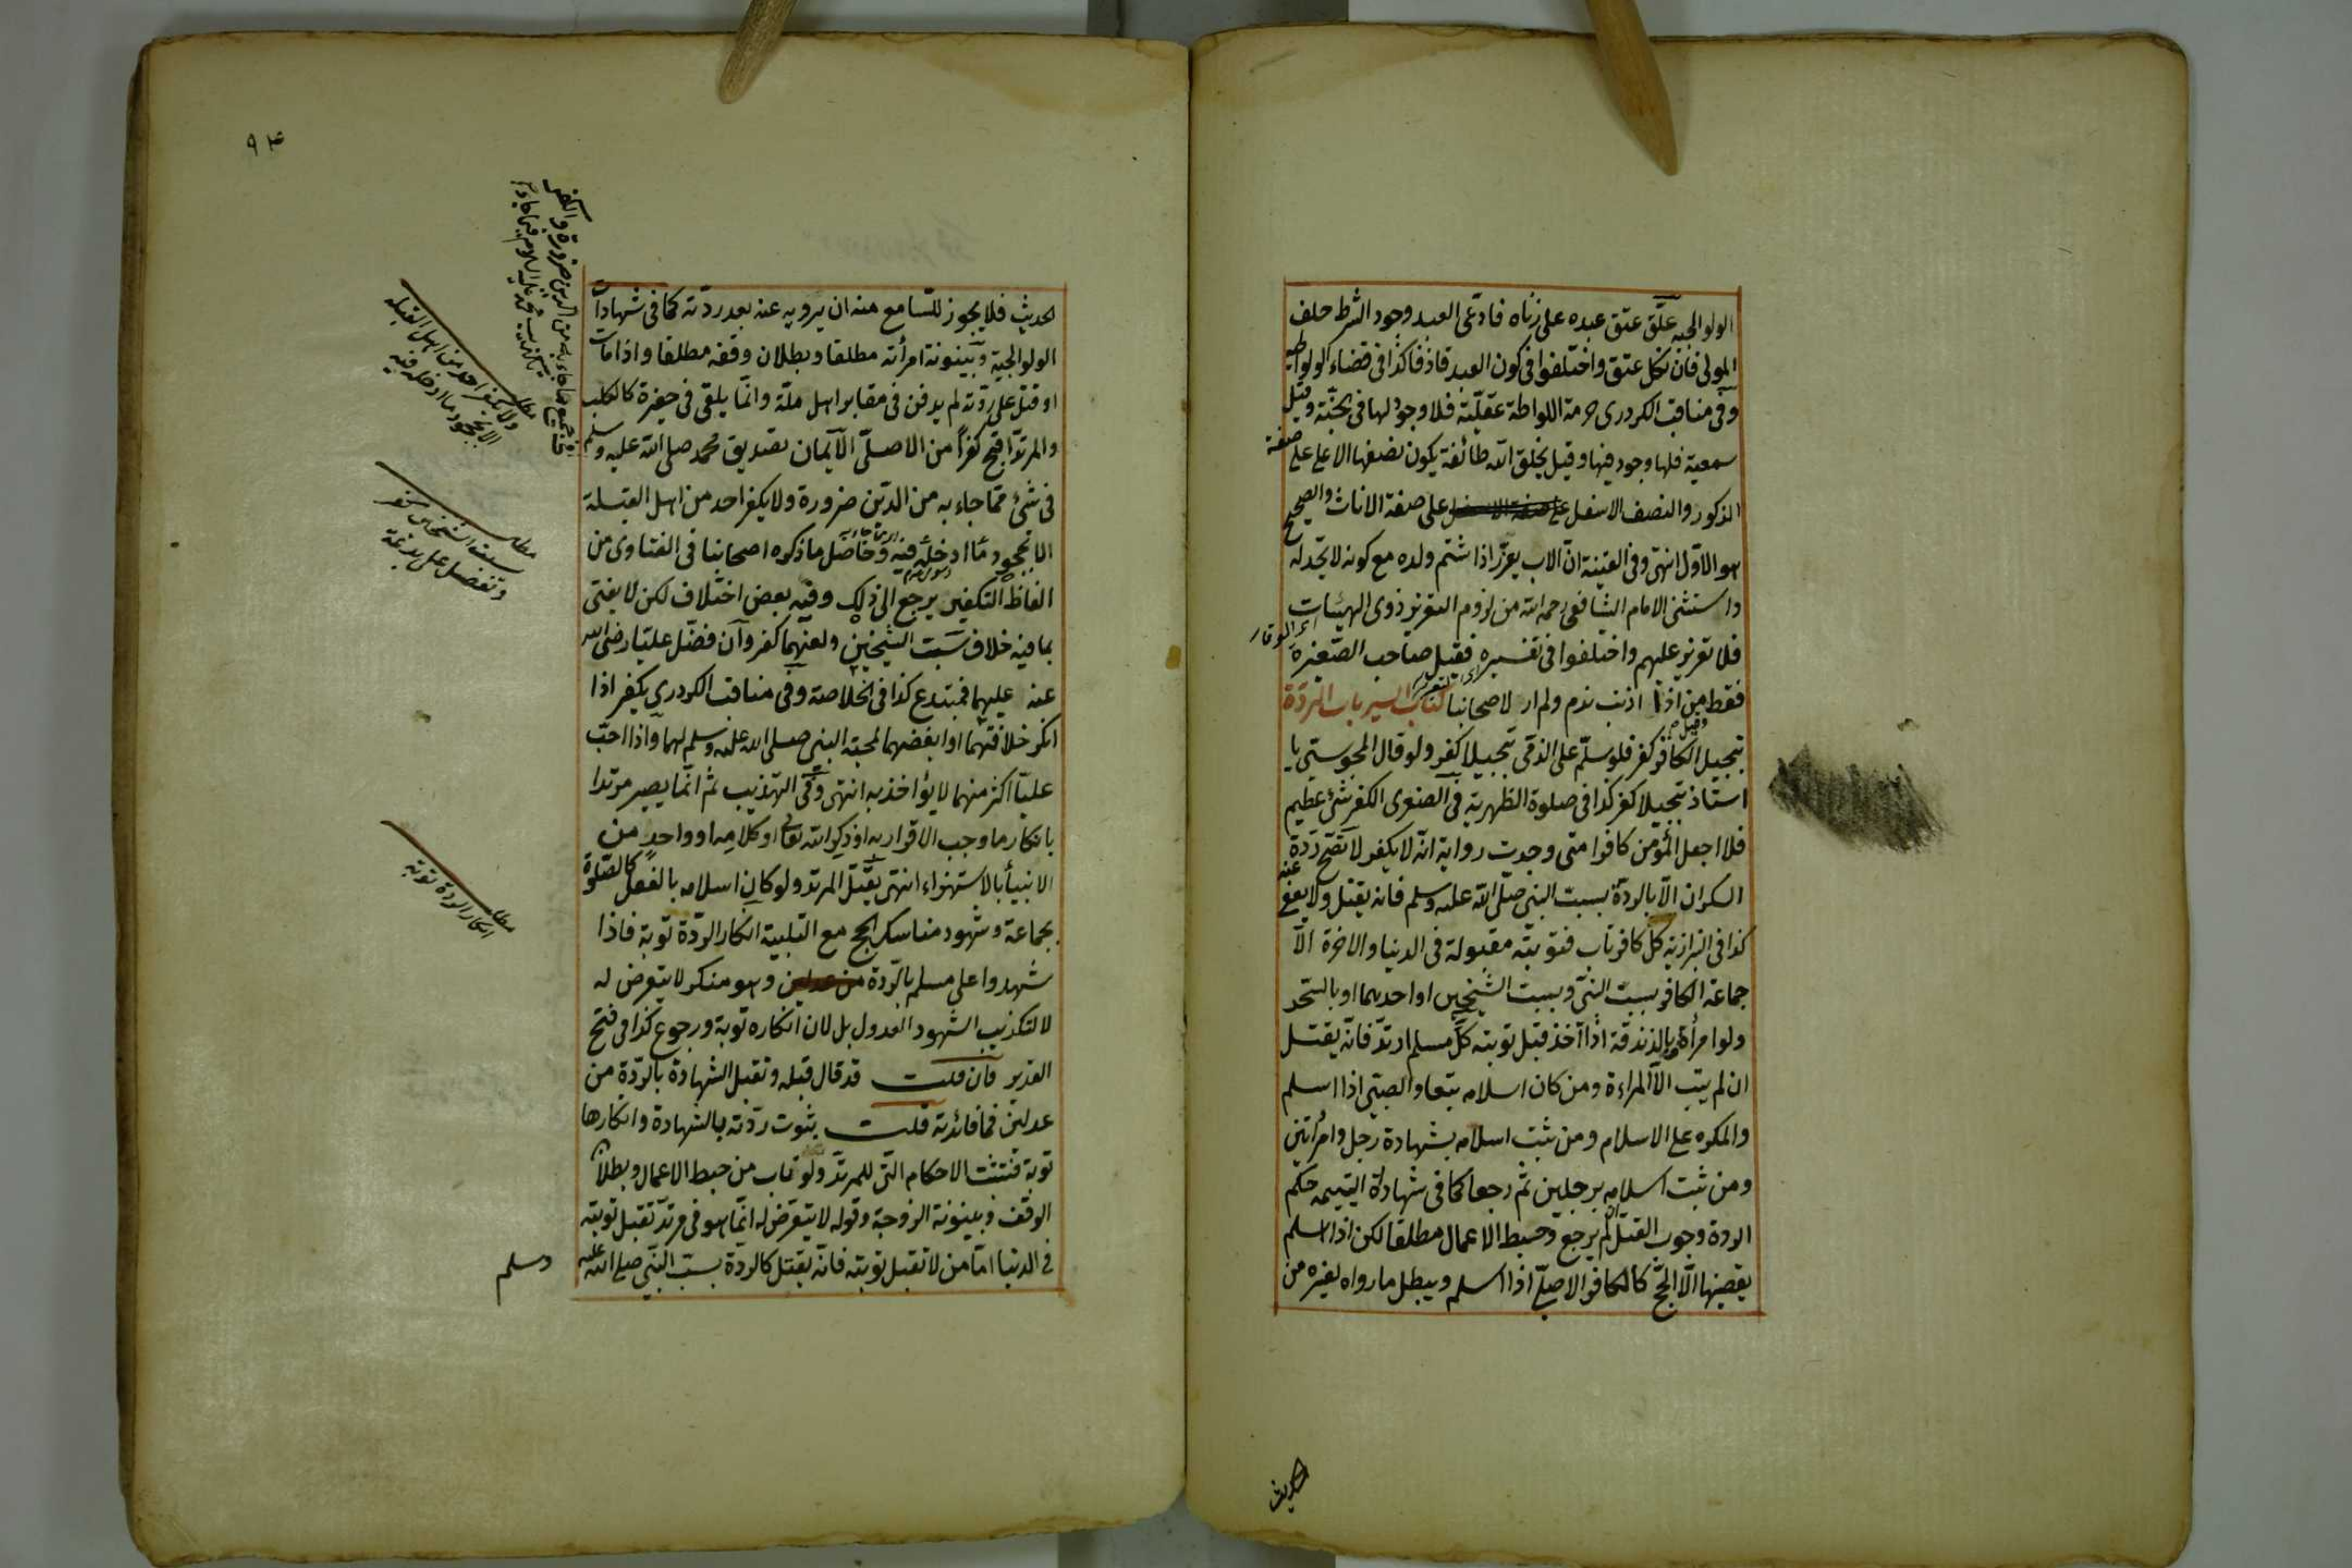 الولوالجية علّق عتق عبده على زناه فادّعى العبد وجود الشرط حلف
المولى فان نكل عتق واختلفوا فى كون العبد قاذفا كذا فى قضاء الولوالجية
وفى مناقب الكردرى حرمة اللواطة عقليّة فلا وجود لها فى الجنّة وقيل
سمعية فلها وجود فيها وقيل يخلق الله طائفة يكون نصفها الاعلى على صفة
الذكور والنصف الاسفل على صفة الاناث والصحيح
هو الاوّل انتهى وفى القنية انّ الاب يعزّر اذا شتم ولده مع كونه لا يحدّ له
واستثنى الامام الشافعى رحمه الله من لزوم التعزير ذوى الهيئات
اى الوقار
فلا تعزير عليهم واختلفوا فى تفسيره فقيل صاحب الصّغيرة
فقط وقيل من اذا اذنب ندم ولم ار لاصحابنا كتاب السير باب الردّة
تبجيل الكافر كفر فلو سلّم على الذمّى تبجيلا كفر ولو قال للمجوسىّ يا
استاذ تبجيلا كفر كذا فى صلوة الظهرية فى الصغرى الكفر شىء عظيم
فلا اجعل المؤمن كافرا متى وجدت رواية انّه لا يكفر لا تصحّ ردّة
السكران الّا بالردّة بسبّ النبى صلّى الله عليه وسلم فانه يقتل ولا يعفى عنه
كذا فى البزازية كلّ كافر تاب فتوبته مقبولة فى الدنيا والاخرة الّا
جماعة الكافر بسبّ النبىّ وبسبّ الشيخين او احدهما او بالسّحر
ولو امرأة وبالزندقة اذا اخذ قبل توبته كلّ مسلم ارتدّ فانّه يقتل
ان لم يتب الّا المراءة ومن كان اسلامه تبعا والصبىّ اذا اسلم
والمكره على الاسلام ومن ثبت اسلامه بشهادة رجل وامرأتين
ومن ثبت اسلامه برجلين ثمّ رجعا كما فى شهادات اليتيمة حكم
الردة وجوب القتل ان لم يرجع وحبط الاعمال مطلقا لكن اذا اسلم
يقضيها الّا الحجّ كالكافر الاصلىّ اذا اسلم ويبطل ما رواه لغيره من
الحديث
٩٤
الحديث فلا يجوز للسّامع منه ان يرويه عنه بعد ردّته كما فى شهادات
الولوالجية وبينونة امرأته مطلقا وبطلان وقفه مطلقا واذا مات
او قتل على ردّته لم يدفن فى مقابر اهل ملّة وانّما يلقى فى حفرة كالكلب
والمرتدّ اقبح كفرًا من الاصلىّ الايمان تصديق محمد صلى الله عليه وسلم
فى شئ ممّا جاء به من الدّين ضرورة ولا يكفر احد من اهل القبلة
الا بجحود ما ادخله فيه وحاصل ما ذكره اصحابنا فى الفتاوى من
الفاظ التكفير يرجع الى ذلك وفيه بعض اختلاف لكن لا يفتى
بما فيه خلاف سبّ الشيخين ولعنهما كفر وان فضّل عليّا رضى الله
عنه عليهما فمبتدع كذا فى الخلاصة وفى مناقب الكردرى يكفر اذا
انكر خلافتهما او ابغضهما لمحبّة النبى صلى الله عليه وسلم لهما واذا احبّ
عليّا اكثر منهما لا يؤاخذ به انتهى وفى التهذيب ثمّ انّما يصير مرتدا
بانكار ما وجب الاقرار به او ذكر الله تعالى او كلامه او واحد من
الانبياء بالاستهزاء انتهى يقتل المرتد ولو كان اسلامه بالفعل كالصّلوة
بجماعة وشهود مناسك الحج مع التلبية انكار الردّة توبة فاذا
شهدوا على مسلم بالردّة وهو منكر لا يتعرض له
لا لتكذيب الشهود العدول بل لان انكاره توبة ورجوع كذا فى فتح
القدير فان قلت قد قال قبله وتقبل الشهادة بالردّة من
عدلين فما فائدته قلت بثبوت ردّته بالشهادة وانكارها
توبة فتثبت الاحكام الّتى للمرتدّ ولو تاب من حبط الاعمال وبطلان
الوقف وبينونة الزوجة وقوله لا يتعرّض له انّما هو فى مرتدّ تقبل توبته
فى الدنيا امّا من لا تقبل توبته فانّه يقتل كالردّة بسبّ النّبى صلى الله عليه
وسلم
مطلب
ولا يكفر احد من اهل القبلة
الا بجحود ما ادخله فيه
مطلب
سبّ الشيخين كفر
وتفضيل على بدعة
مطلب
انكار الردة توبة